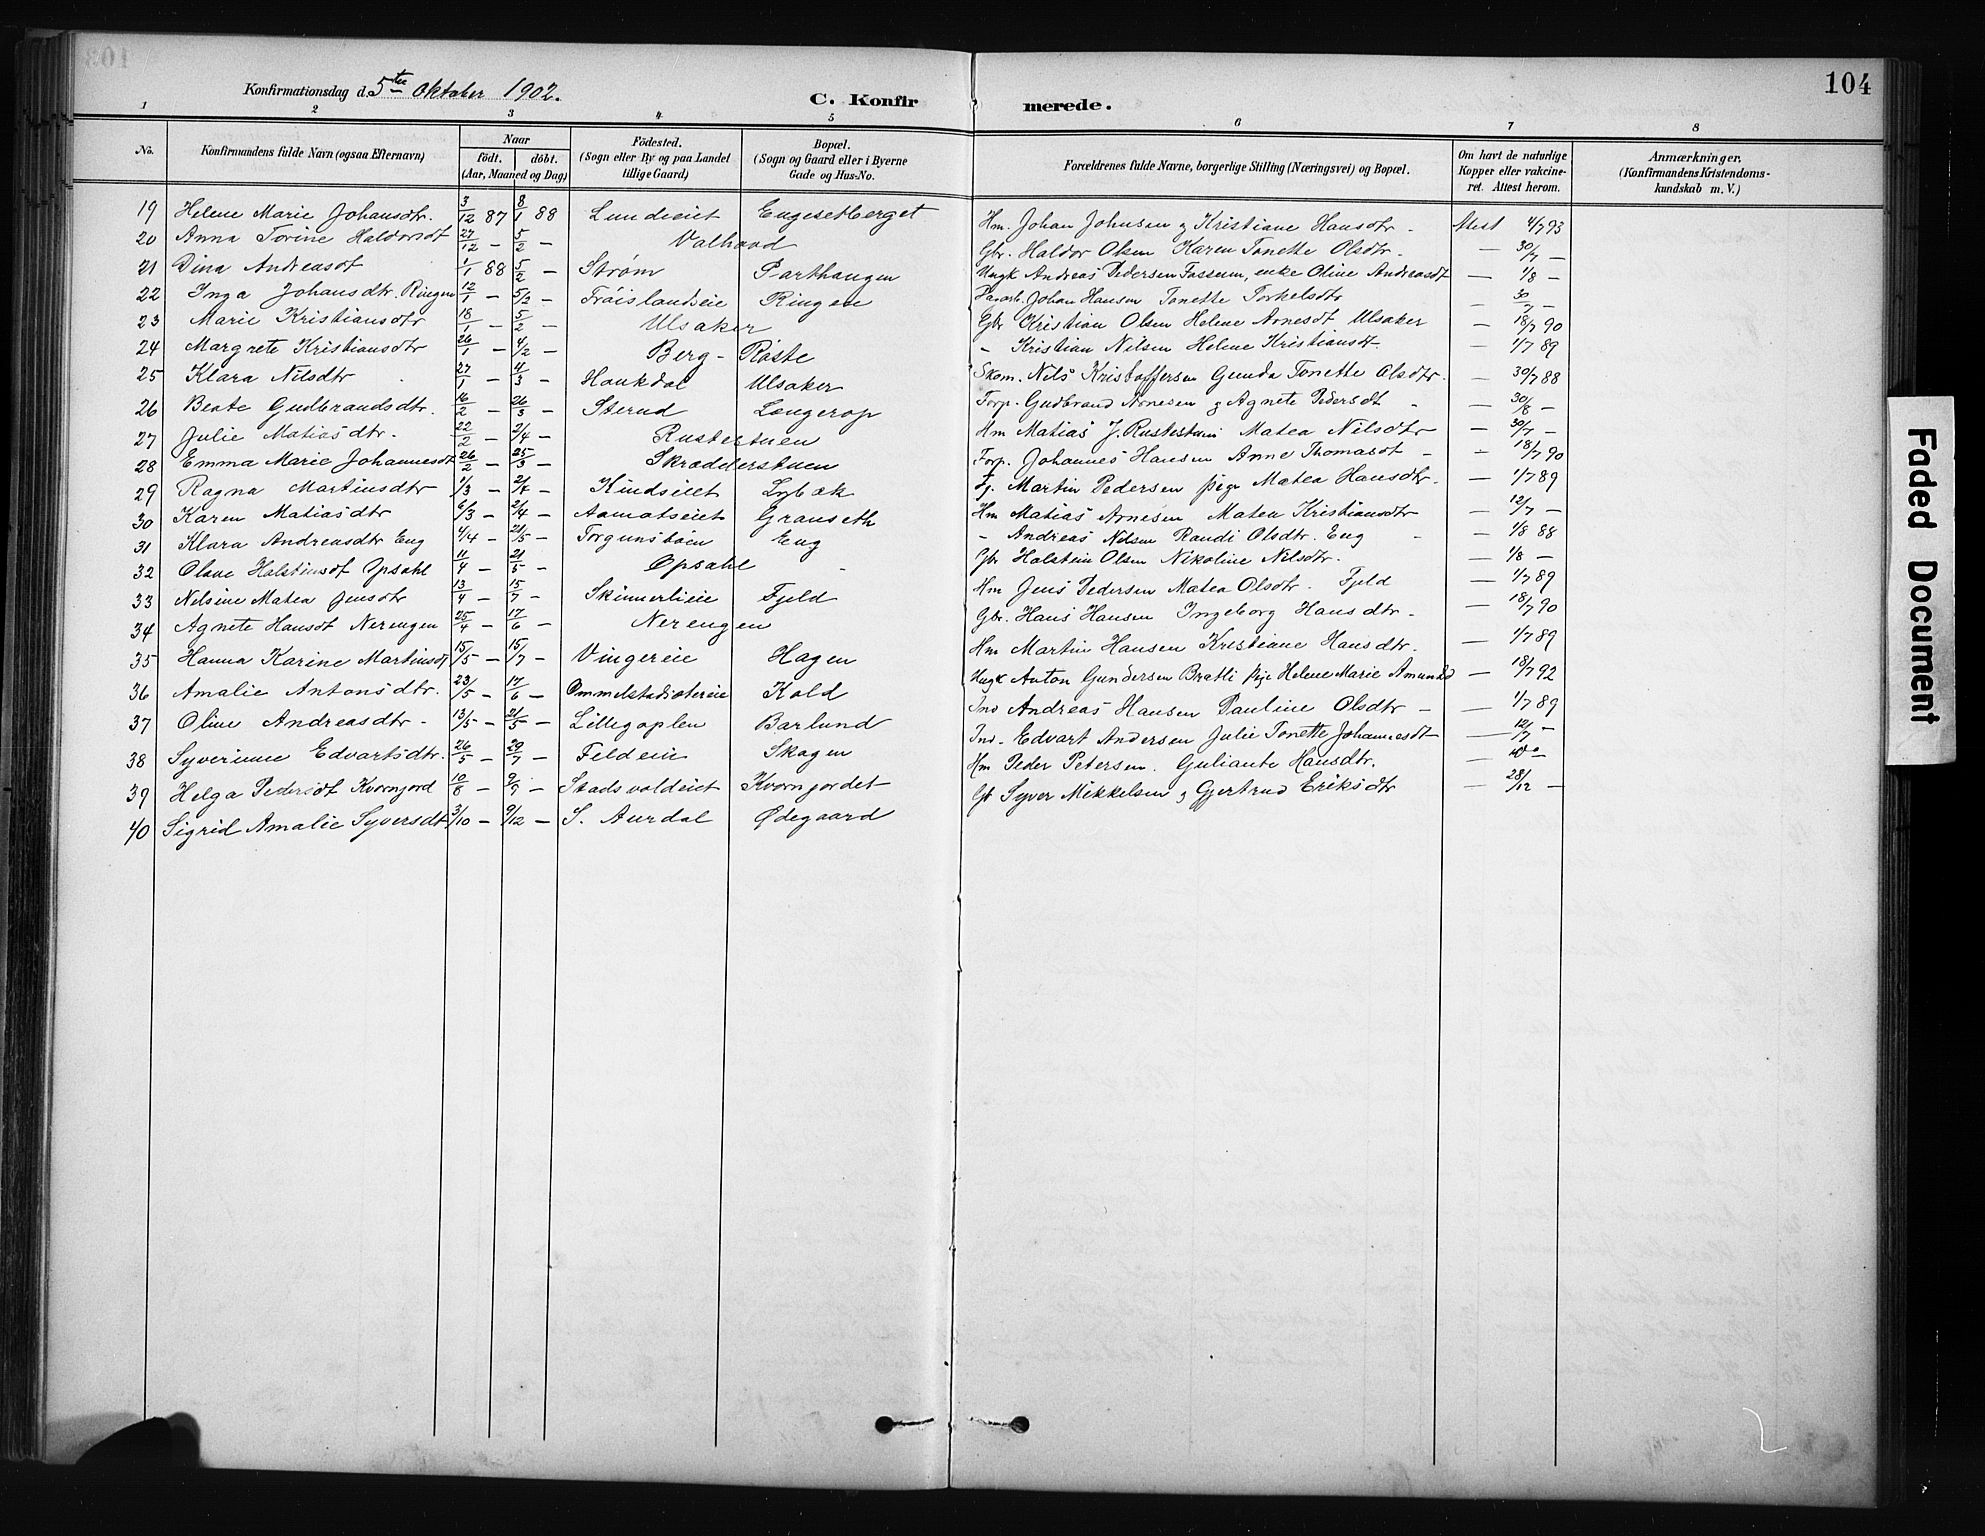 104
Konfirmationsdag d. 5te Oktober 1902.
C. Konfirmerede.
1 2 3 4 5 6 7 8
No. | Konfirmandens fulde Navn (ogsaa Efternavn) | Naar født. døbt. (Aar, Maaned og Dag) | Fødested. (Sogn eller By og paa Landet tillige Gaard) | Bopæl. (Sogn og Gaard eller i Byerne Gade og Hus-No. | Forældrenes fulde Navne, borgerlige Stilling (Næringsvei) og Bopæl. | Om havt de naturlige Kopper eller vakcineret. Attest herom. | Anmærkninger. (Konfirmandens Kristendomskundskab m. V.)
19 Helene Marie Johansdtr. 3/12 87 8/1 88 Lundeiet Engesetberget Hm. Johan Johnsen & Kristiane Hansdtr - Attest 4/7 93
20 Anna Torine Haldorsdt 27/12 - 5/2 - Valhovd Gbr. Haldor Olsen Karen Tonette Olsdtr. - 30/7 -
21 Dina Andreasdt 1/1 88 5/2 - Strøm Parthaugen Ungk Andreas Pedersen Fossum, enke Oline Andreasdt - 1/8 -
22 Inga Johansdtr. Ringen 12/1 - 5/2 - Frøislandseie Ringen Johan Hansen Tonette Torkelsdtr - 30/7 -
23 Marie Kristiansdtr 18/1 - 5/2 - Ulsaker Gbr Kristian Olsen Helene Arnesdt Ulsaker - 18/7 90
24 Margrete Kristiansdtr 26/1 - 4/2 - Berg - Røste - Kristian Nilsen Helene Kristiansdt - 1/7 89
25 Klara Nilsdtr 27/1 - 4/3 - Haukdal Ulsaker Skom. Nils Kristoffersen Gunda Tonette Olsdtr. - 30/7 88
26 Beate Gudbrandsdtr. 16/2 - 26/3 - Sterud Longerop Forp. Gudbrand Arnesen & Agnete Pedersdt - 30/8 -
27 Julie Matiasdtr. 22/2 - 2/4 - Rustestuen Hm Matias J. Rustestuen Matea Nilsdtr - 30/7 -
28 Emma Marie Johannesdt 26/2 - 25/3 - Skrædderstuen Forp. Johannes Hansen Anne Thomasdt - 18/7 90
29 Ragna Martinsdtr 1/3 - 2/4 - Kindseiet Lybæk Tj. Martin Pedersen pige Matea Hansdtr. - 1/7 89
30 Karen Matiasdtr 6/3 - 2/4 - Aamotseiet Granseth Hm Matias Arnesen Matea Kristiansdtr - 12/7 -
31 Klara Andreasdtr Eng 4/4 - 21/5 - Torgunsbøen Eng - Andreas Nilsen Randi Olsdtr. Eng - 1/8 88
32 Olave Holstinsdt Opsahl 11/4 - 21/5 - Opsahl - Gbr Holstein Olsen Nikoline Nilsdtr. - 1/8 -
33 Nelsine Matea Jensdtr 13/4 - 15/7 - Skinnerlieie Fjeld Hm Jens Pedersen Matea Olsdtr. Fjeld - 1/7 89
34 Agnete Hansdt Nerengen 25/4 - 17/6 - Nerengen Gbr. Hans Hansen Ingeborg Hansdtr - 18/7 90
35 Hanna Karine Martinsdt 15/5 - 15/7 - Vingereie Hagen Hm Martin Hansen Kristiane Hansdtr. - 1/7 89
36 Amalie Antonsdtr. 23/5 - 17/6 - Kold Ungk Anton Gundersen Bratli pige Helene Marie Amundsd - 18/7 92
37 Oline Andreasdtr - 13/5 - 21/5 - Lillegoplen Barlund Ind Andreas Hansen Pauline Olsdtr - 1/7 89
38 Syverinne Edvartsdtr. 26/5 - 29/7 - Feldeie Skogen Ind. Edvart Andersen Julie Tonette Johannesdt - 12/7 -
39 Helga Pedersdt Kvernjord 10/8 - 9/9 - Stadsvoldeiet Kvernjordet Hm Peder Petersen. Guliante Hansdtr. -
40 Sigrid Amalie Syversdt 3/10 - 9/12 - S. Aurdal Ødegaard Gb Syver Mikkelsen & Gjertrud Eriksdtr - 28/12 -
Faded Document